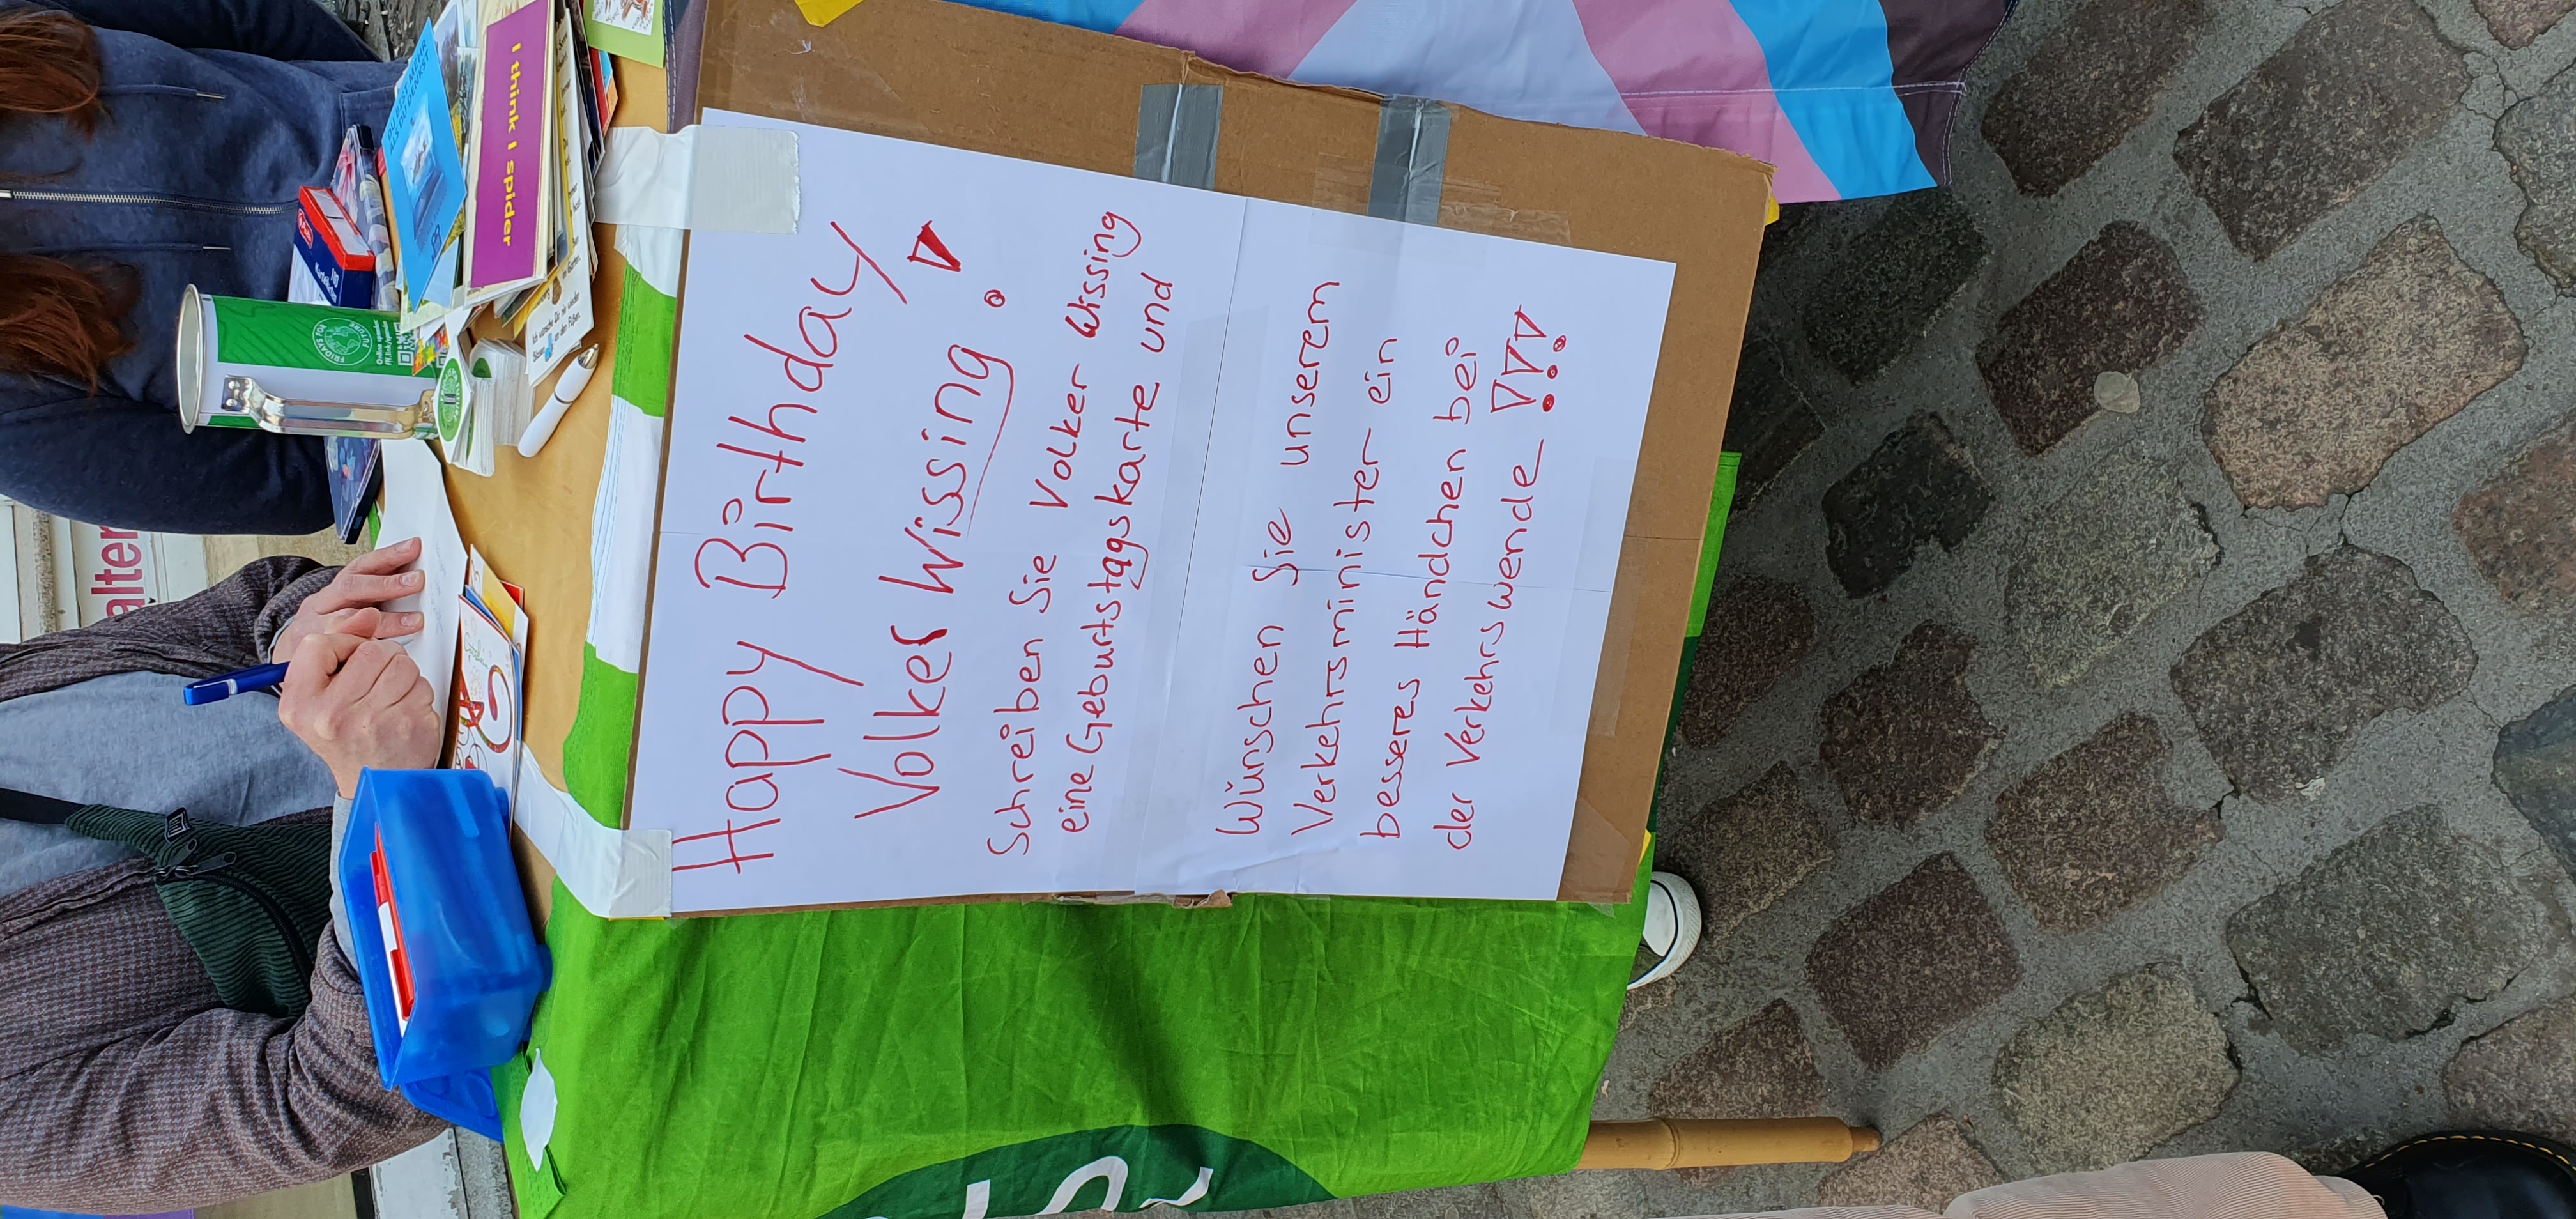 alter
FRIDAYS FOR
FUTURE
Online spenden:
fff.link/spenden
I think I spider
Happy Birthday
Volker Wissing!
Schreiben Sie Volker Wissing
eine Geburtstagskarte und
Wünschen Sie unserem
Verkehrsminister ein
besseres Händchen bei
der Verkehrswende!!!